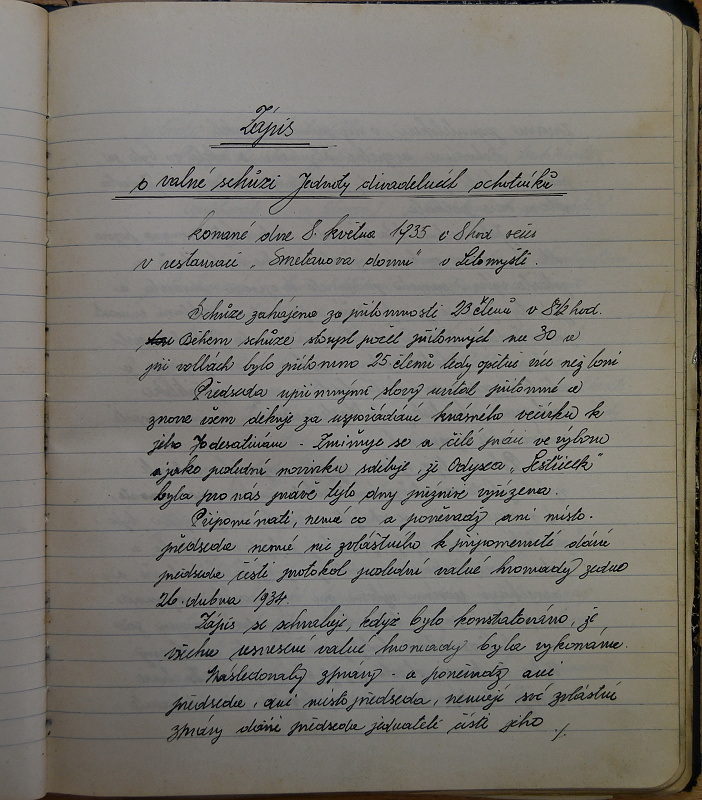 Zápis
o valné schůzi Jednoty divadelních ochotníků
konané dne 8. května 1935 v 8 hod večer
v restauraci „Smetanova domu" v Litomyšli.
Schůze zahájena za přítomnosti 23 členů v 8 1/2 hod.
Během schůze stoupl počet přítomných na 30 a
při volbách bylo přítomno 25 členů tedy opětně více než loni
Předseda upřímnými slovy uvítal přítomné a
znova všem děkuje za uspořádání krásného večírku k
jeho padesátinám. Zmiňuje se o čilé práci ve výboru
a jako poslední novinku sděluje, že Odysea
byla pro nás právě tyto dny příznivě vyřízena.
Připomínati, nemá co a poněvadž ani místo-
předseda nemá nic zvláštního k připomenutí dává
předseda čísti protokol poslední valné hromady ze dne
26. dubna 1934.
Zápis se schvaluje, když bylo konstatováno, že
všechna usnesení valné hromady byla vykonána.
Následovaly zprávy - a poněvadž ani
předseda, ani místopředseda, nemají své zvláštní
zprávy dává předseda jednateli čísti jeho ./.